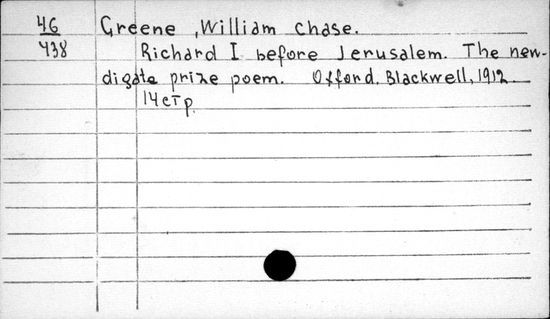 46 Greene, William Chase.
438 Richard I before Jerusalem. The new-
digate prize poem. Offord, Blackwell, 1912.
14 стр.